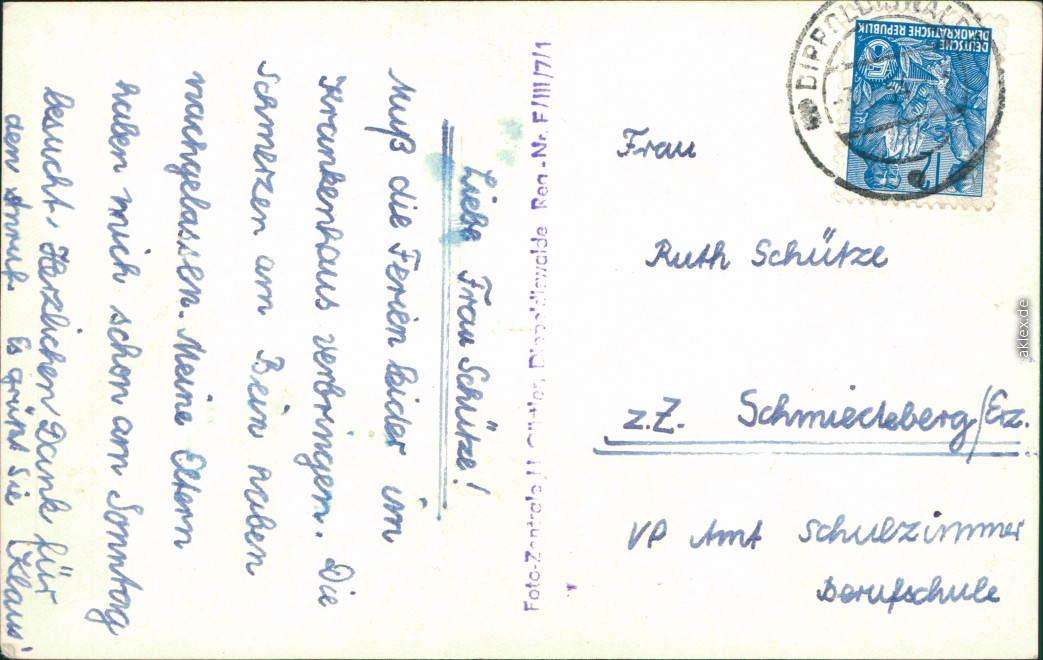 Liebe Frau Schütze!
Muß die Ferien leider im
Krankenhaus verbringen. Die
Schmerzen am Bein haben
nachgelassen. Meine Eltern
haben mich schon am Sonntag
besucht. Herzlichen Dank für
den Anruf. Es grüßt Sie Klaus
Foto-Zentrale Dippoldiswalde Reg.-Nr. F/III/7/1
Frau
Ruth Schütze
z.Z. Schmiedeberg/Erz.
VP Amt Schulzimmer
Berufschule
DIPPOLDISWALDE
DEUTSCHE
DEMOKRATISCHE REPUBLIK
aklex.de